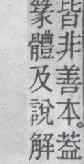 皆非善本。蓋
篆體及說解